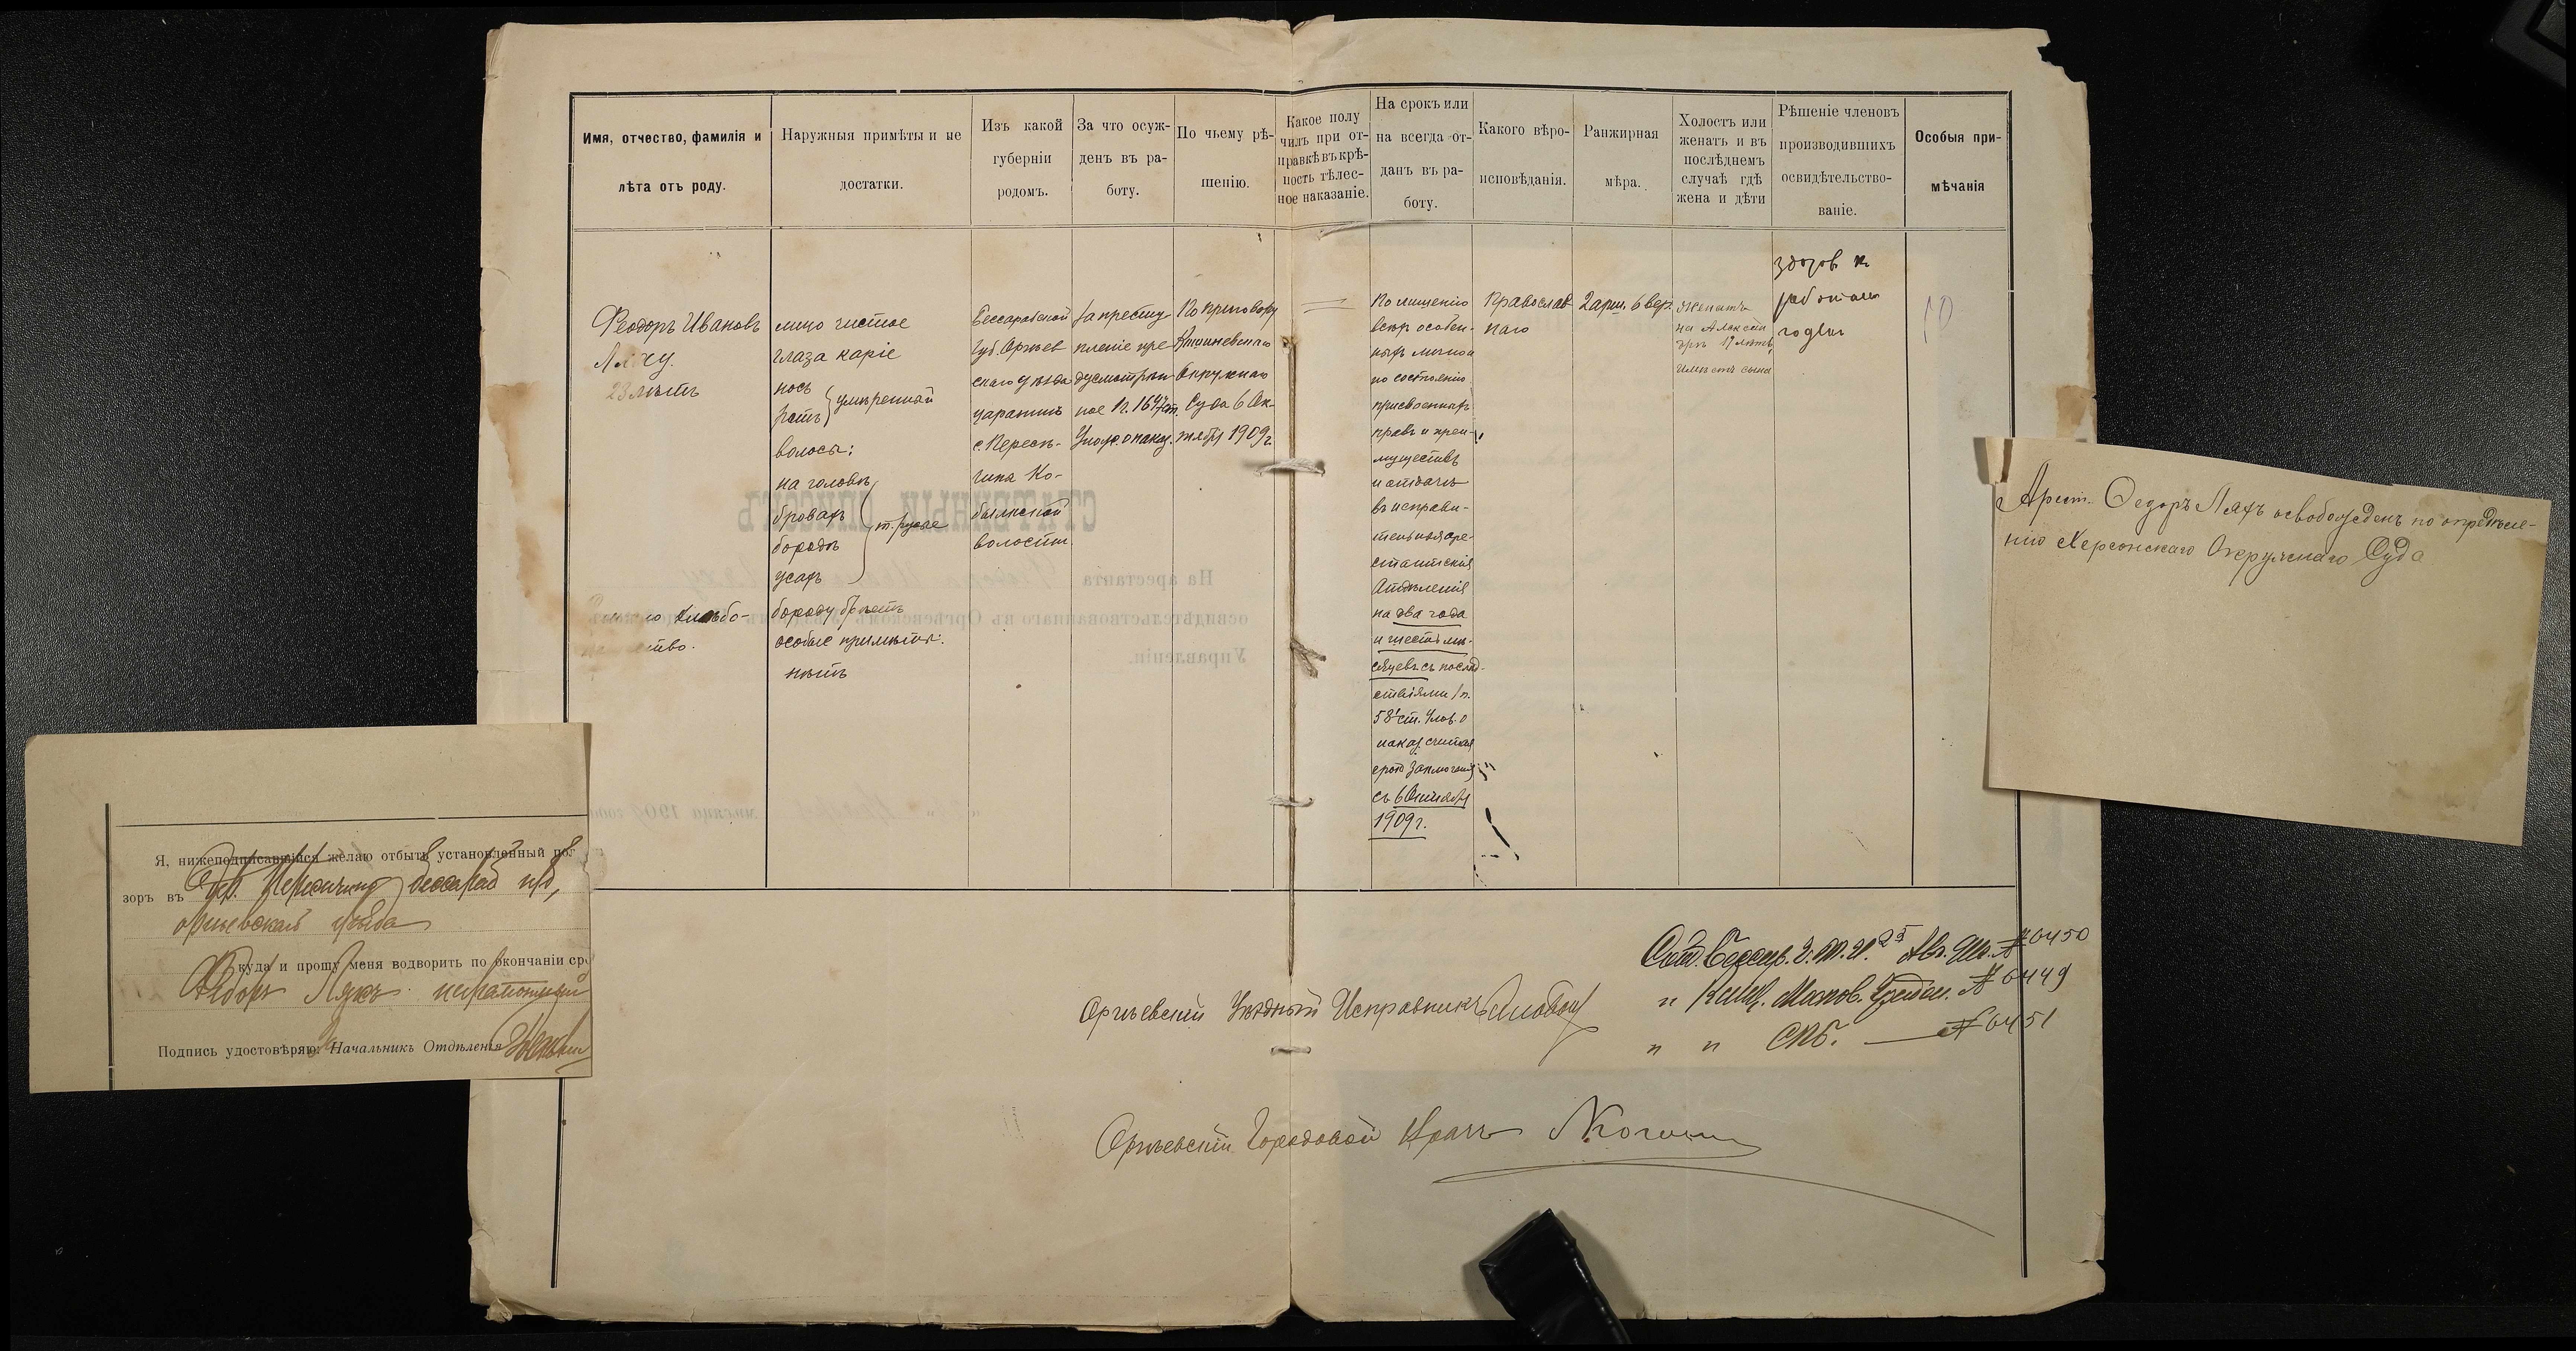 Имя, отчество, фамилія и
лѣта отъ роду.
Наружныя примѣты и не
достатки.
Изъ какой
губерніи
родомъ.
За что осуж-
денъ въ ра-
боту.
По чьему рѣ-
шенію.
Какое полу
чилъ при от-
правкѣ въ крѣ-
пость тѣлес-
ное наказаніе.
На срокъ или
на всегда от-
данъ въ ра-
боту.
Какого вѣро-
исповѣданія.
Ранжирная
мѣра.
Холостъ или
женатъ и въ
послѣднемъ
случаѣ гдѣ
жена и дѣти
Рѣшеніе членовъ
производившихъ
освидѣтельство-
ваніе.
Особыя при-
мѣчанія
Феодоръ Ивановъ
Ляху.
23 лѣтъ
лицо чистое
глаза каріе
носъ
ротъ } умѣренный
волосы:
на головѣ
бровяхъ
бородѣ
усахъ
т. русые
бороду брѣетъ
особые примѣты:
нѣтъ
Бессарабской
губ. Оргѣев
скаго уѣзда
царанинъ
с. Пересѣ-
чина Ко-
быльской
волости.
За престу-
пленіе пре-
дусмотрѣн
ное 1 ч. 1647 ст.
Улож. о наказ.
По приговору
Кишиневскаго
Окружнаго
Суда 6 Ок-
тября 1909 г.
По лишенію
всѣхъ особен-
ныхъ лично и
по состоянію
присвоенныхъ
правъ и преи-
муществъ
и отдачѣ
въ исправи-
тельныя аре-
стантскія
Отдѣленія
на два года
и шесть мѣ-
сяцевъ съ послѣд-
ствіями 1 п.
58¹ ст. Улож. о
наказ. считая
срокъ заключенія
съ 6 Октября
1909 г.
Православ-
наго
2 арш. 6 вер.
Женатъ
на Алексан
дрѣ 19 лѣтъ,
имѣетъ сына
здоров къ
работам
годен
10
Арест. Федоръ Ляхъ освобожденъ по опредѣле-
нію Херсонскаго Окружнаго Суда
Я, нижеподписавшійся желаю отбыть установленный
зоръ въ Пересичино бессараб губ,
оргіевскаго уѣзда
куда и прошу меня водворить по окончаніи
Федоръ Ляхъ неграмотный
Подпись удостовѣряю: Начальникъ Отдѣленія
Оргѣевскій Уѣздный Исправникъ
№ 6450
№ 6449
" " СПБ. — № 6451
Оргѣевскій Городовой Врачъ